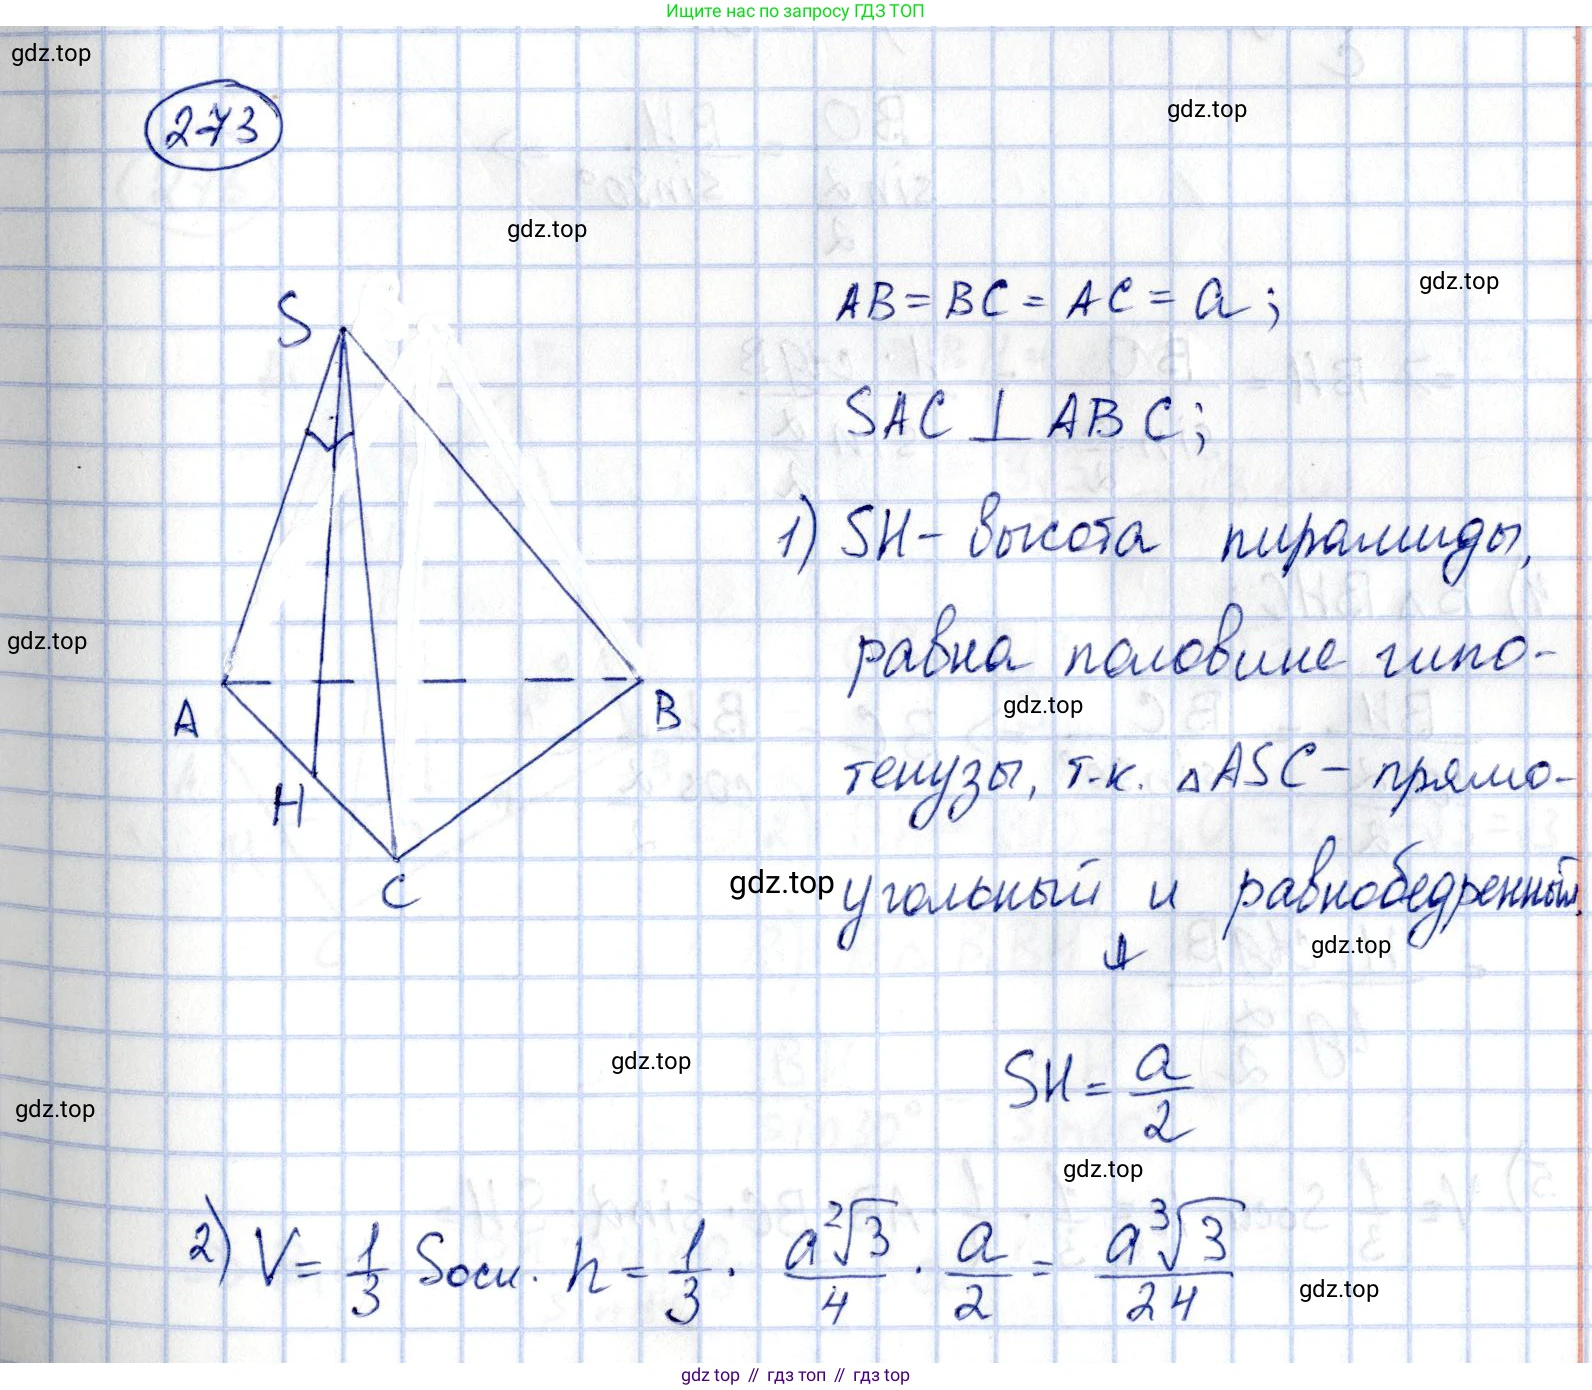 Ищите нас по запросу ГДЗ ТОП
gdz.top
273
gdz.top
gdz.top
S
AB = BC = AC = a;
gdz.top
SAC ⊥ ABC;
1) SH – высота пирамиды,
gdz.top
равна половине гипо-
A
B
gdz.top
тенузы, т.к. △ASC – прямо-
H
C
gdz.top
угольный и равнобедренный.
gdz.top
⇓
gdz.top
SH = a/2
gdz.top
gdz.top
2) V = 1/3 Sосн. h = 1/3 · a²√3/4 · a/2 = a³√3/24
gdz.top
gdz.top // гдз топ // гдз.top